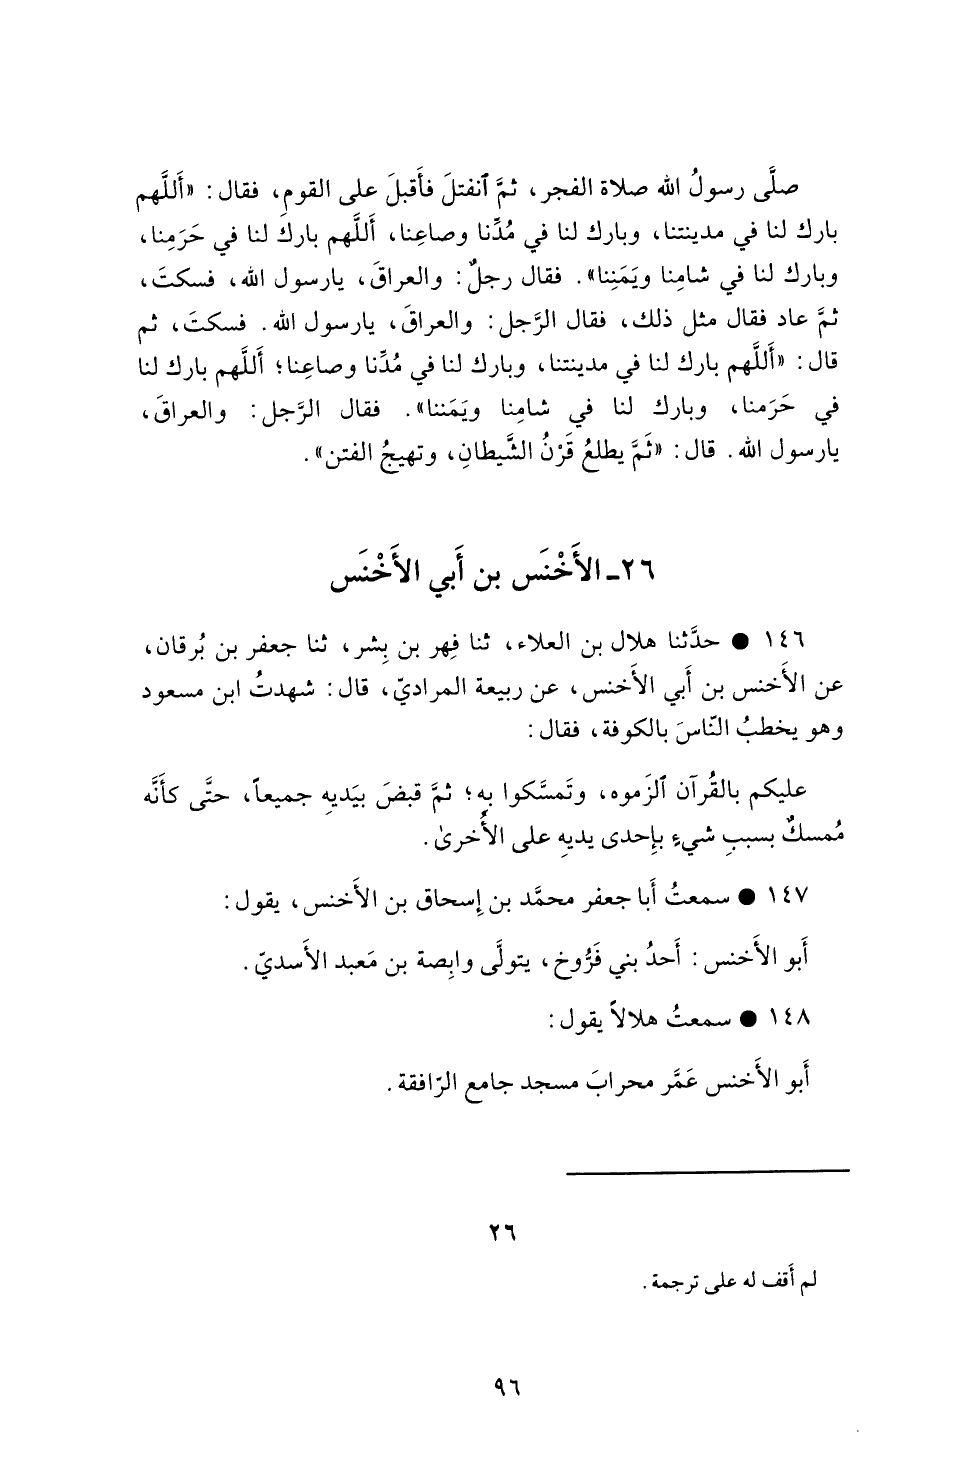 صلَّى رسولُ الله صلاة الفجر، ثمَّ ٱنفتلَ فأَقبلَ على القومِ، فقال: «أَللَّهم
بارك لنا في مدينتنا، وبارك لنا في مُدِّنا وصاعِنا، أَللَّهم باركَ لنا في حَرَمِنا،
وبارك لنا في شامِنا ويَمَنِنا». فقال رجلٌ: والعراقَ، يارسول الله، فسكتَ،
ثمَّ عاد فقال مثل ذلك، فقال الرَّجل: والعراقَ، يارسول الله. فسكتَ، ثم
قال: «أَللَّهم بارك لنا في مدينتنا، وبارك لنا في مُدِّنا وصاعِنا؛ أَللَّهم بارك لنا
في حَرَمنا، وبارك لنا في شامِنا ويَمَننا». فقال الرَّجل: والعراقَ،
يارسول الله. قال: «ثَمَّ يطلعُ قَرْنُ الشَّيطانِ، وتهيجُ الفتن».
٢٦ـ الأَخْنَس بن أَبي الأَخْنَس
١٤٦ ● حدَّثنا هلال بن العلاء، ثنا فِهر بن بِشر، ثنا جعفر بن بُرقان،
عن الأَخنس بن أَبي الأَخنس، عن ربيعة المراديّ، قال: شهدتُ ابن مسعود
وهو يخطبُ النّاسَ بالكوفة، فقال:
عليكم بالقُرآن ٱلزَموه، وتَمسَّكوا بِه؛ ثمَّ قبضَ بيَديهِ جميعاً، حتَّى كأَنَّه
مُمسكٌ بسببِ شيءٍ بإِحدى يديهِ على الأُخرىٰ.
١٤٧ ● سمعتُ أَبا جعفر محمَّد بن إِسحاق بن الأَخنس، يقول:
أَبو الأَخنس: أَحدُ بني فَرُّوخ، يتولَّى وابِصة بن مَعبد الأَسديّ.
١٤٨ ● سمعتُ هلالاً يقول:
أَبو الأَخنس عَمَّر محرابَ مسجد جامع الرّافقة.
٢٦
لم أَقف له على ترجمة.
٩٦